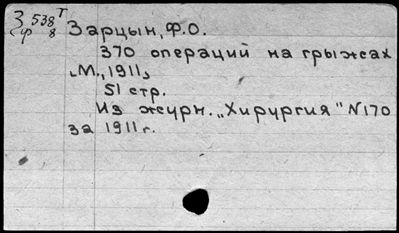 З 538 Т
ф 8
Зарцын, Ф.О.
370 операций на грыжах
„М., 1911„
51 стр.
Из журн. „Хирургия" N170
за 1911 г.